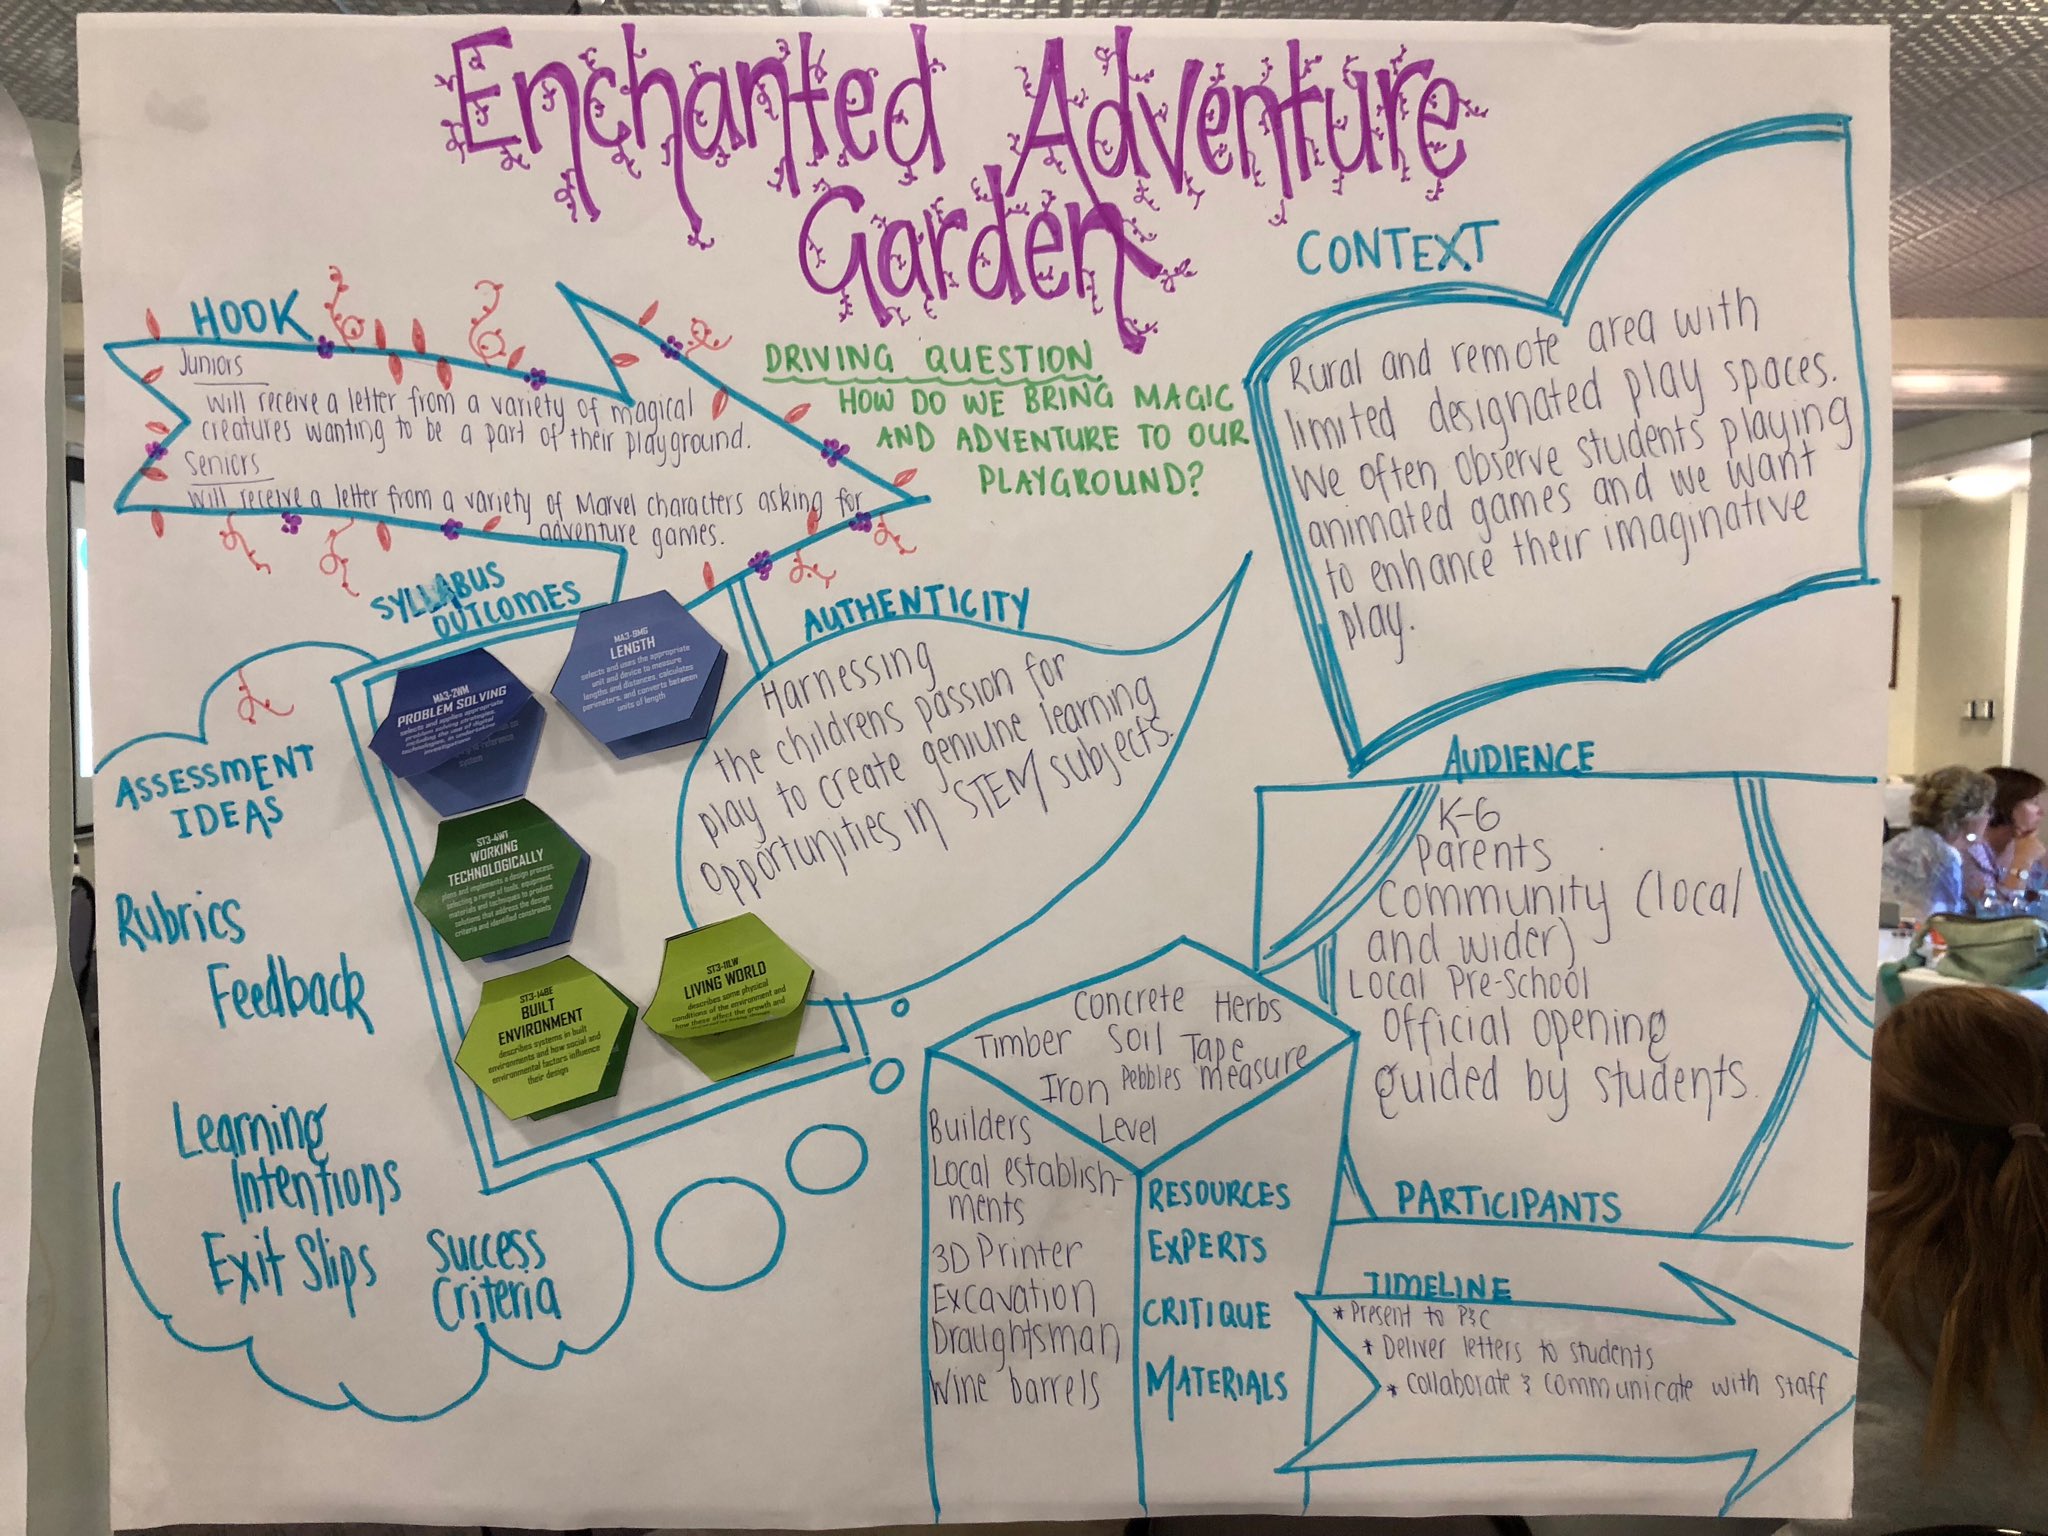 Enchanted Adventure
Garden
HOOK
Juniors
will receive a letter from a variety of magical
creatures wanting to be a part of their playground.
Seniors
will receive a letter from a variety of Marvel characters asking for
adventure games.
DRIVING QUESTION
HOW DO WE BRING MAGIC
AND ADVENTURE TO OUR
PLAYGROUND?
CONTEXT
Rural and remote area with
limited designated play spaces.
We often observe students playing
animated games and we want
to enhance their imaginative
play.
SYLLABUS
OUTCOMES
MA3-2WM
PROBLEM SOLVING
selects and applies appropriate
problem solving strategies,
including the use of digital
technologies, in undertaking
investigations
system
MA3-9MG
LENGTH
selects and uses the appropriate
unit and device to measure
lengths and distances, calculates
perimeters, and converts between
units of length
ST3-4WT
WORKING
TECHNOLOGICALLY
plans and implements a design process,
selecting a range of tools, equipment,
materials and techniques to produce
solutions that address the design
criteria and identified constraints
ST3-14BE
BUILT
ENVIRONMENT
describes systems in built
environments and how social and
environmental factors influence
their design
ST3-11LW
LIVING WORLD
describes some physical
conditions of the environment and
how these affect the growth and
AUTHENTICITY
Harnessing
the childrens passion for
play to create geniune learning
opportunities in STEM subjects.
ASSESSMENT
IDEAS
Rubrics
Feedback
Learning
Intentions
Exit Slips
Success
Criteria
AUDIENCE
K-6
Parents
Community (local
and wider)
Local Pre-School
Official opening
guided by students.
PARTICIPANTS
Concrete Herbs
Timber Soil Tape
Iron Pebbles measure
Level
Builders
Local establish-
ments
3D Printer
Excavation
Draughtsman
Wine barrels
RESOURCES
EXPERTS
CRITIQUE
MATERIALS
TIMELINE
* Present to P&C
* Deliver letters to students
* Collaborate & communicate with staff